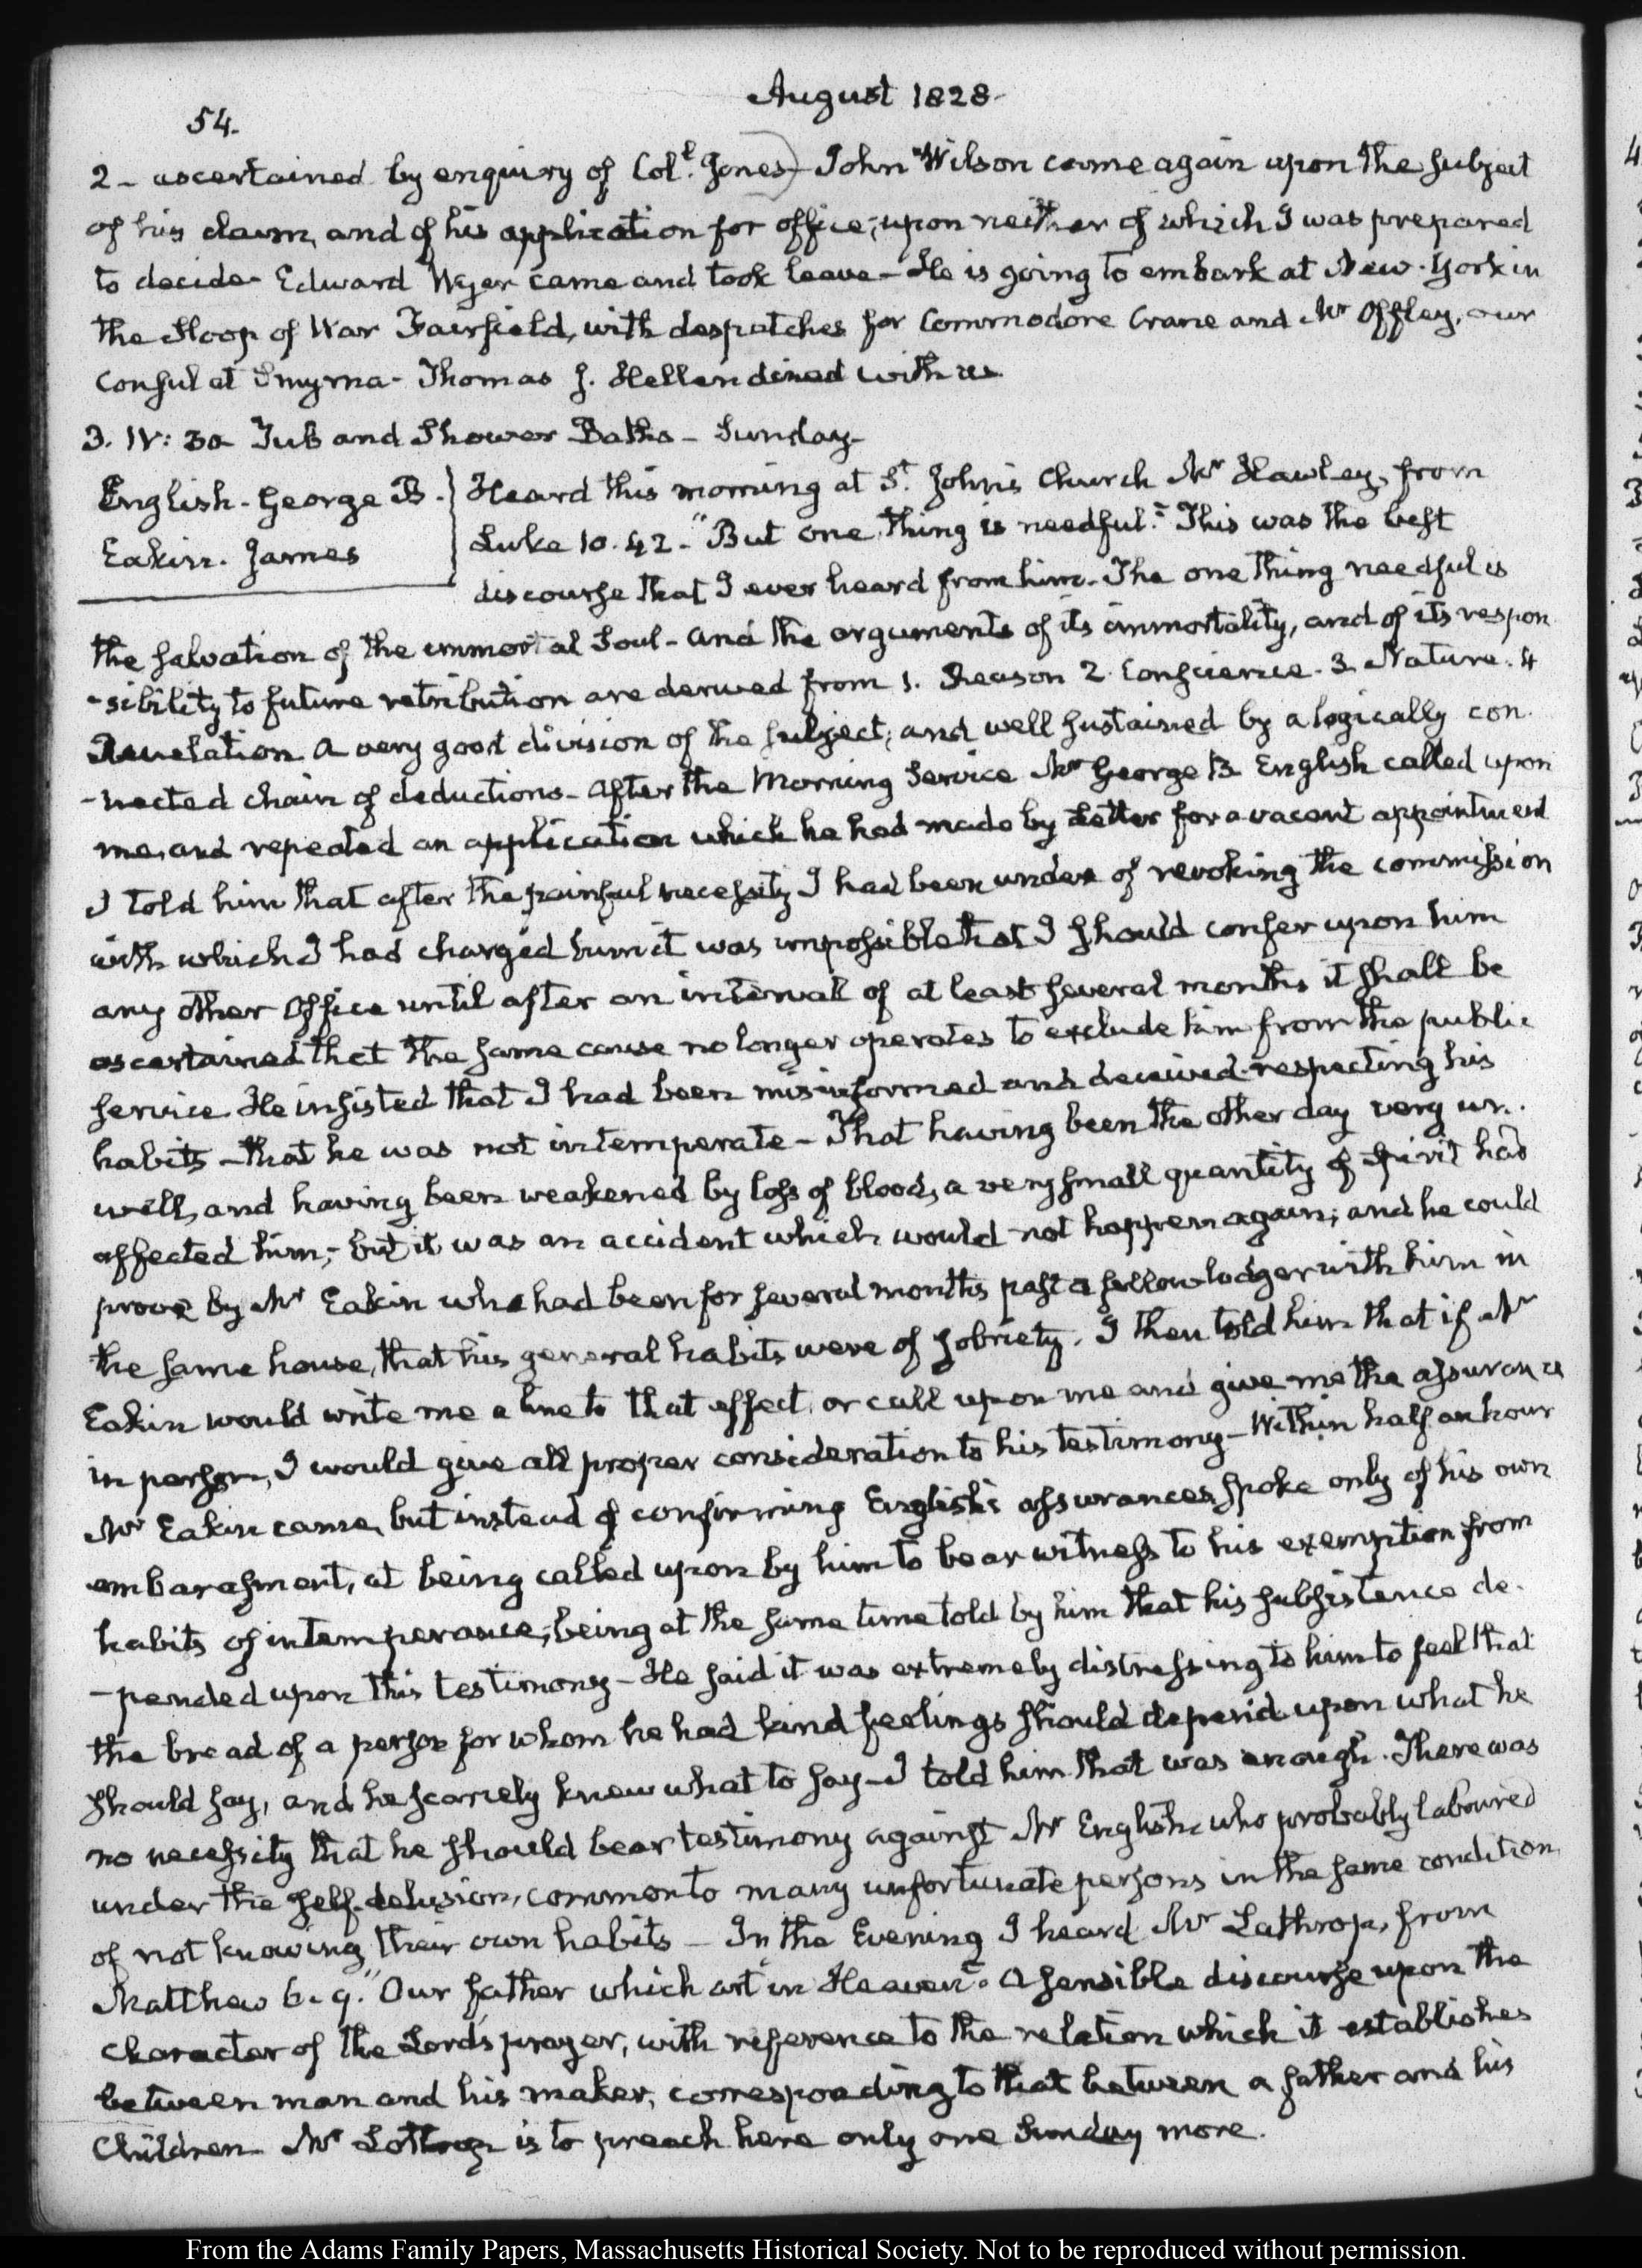 August 1828.
54.
2 - ascertained by enquiry of Col.l Jones) John Wilson came again upon the subject
of his claim, and of his application for office; upon neither of which I was prepared
to decide. Edward Wyer came and took leave - He is going to embark at New-York in
the Sloop of War Fairfield, with despatches for Commodore Crane and Mr Offley, our
Consul at Smyrna - Thomas J. Hellen dined with us
3. IV: 30 Tub and Shower Baths - Sunday
English - George B.
Eakin. James
Heard this morning at St. John's Church Mr Hawley, from
Luke 10. 42. "But one thing is needful." This was the best
discourse that I ever heard from him. The one thing needful is
the salvation of the immortal Soul - and the arguments of its immortality, and of its respon
-sibility to future retribution are derived from 1. Reason 2. Conscience. 3. Nature. 4
Revelation. A very good division of the subject; and well sustained by a logically con-
-nected chain of deductions. After the Morning Service Mr George B English called upon
me, and repeated an application which he had made by Letter for a vacant appointment
I told him that after the painful necessity I had been under of revoking the commission
with which I had charged him it was impossible that I should confer upon him
any other Office until after an interval of at least several months it shall be
ascertained that the same cause no longer operates to exclude him from the public
service. He insisted that I had been misinformed and deceived respecting his
habits - that he was not intemperate - That having been the other day very un-
well, and having been weakened by loss of blood, a very small quantity of Spirit had
affected him; but it was an accident which would not happen again; and he could
prove by Mr Eakin who had been for several months past a fellow lodger with him in
the same house, that his general habits were of sobriety. I then told him that if Mr
Eakin would write me a line to that effect, or call upon me and give me the assurance
in person, I would give all proper consideration to his testimony - Within half an hour
Mr Eakin came, but instead of confirming English's assurances, spoke only of his own
embarassment, at being called upon by him to bear witness to his exemption from
habits of intemperance; being at the same time told by him that his subsistence de-
-pended upon this testimony - He said it was extremely distressing to him to feel that
the bread of a person for whom he had kind feelings should depend upon what he
should say, and he scarcely knew what to say - I told him that was enough. There was
no necessity that he should bear testimony against Mr English who probably laboured
under the self-delusion, common to many unfortunate persons in the same condition,
of not knowing their own habits - In the Evening I heard Mr Lathrop, from
Matthew 6. 9. "Our father which art in Heaven". A sensible discourse upon the
character of the Lord's prayer, with reference to the relation which it establishes
between man and his maker, corresponding to that between a father and his
Children. Mr Lothrop is to preach here only one Sunday more.
From the Adams Family Papers, Massachusetts Historical Society. Not to be reproduced without permission.